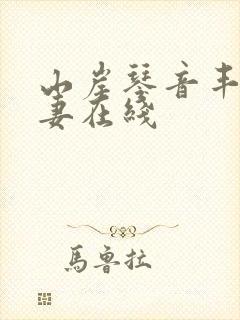 山崖琴音丰
妻在线
馬魯拉